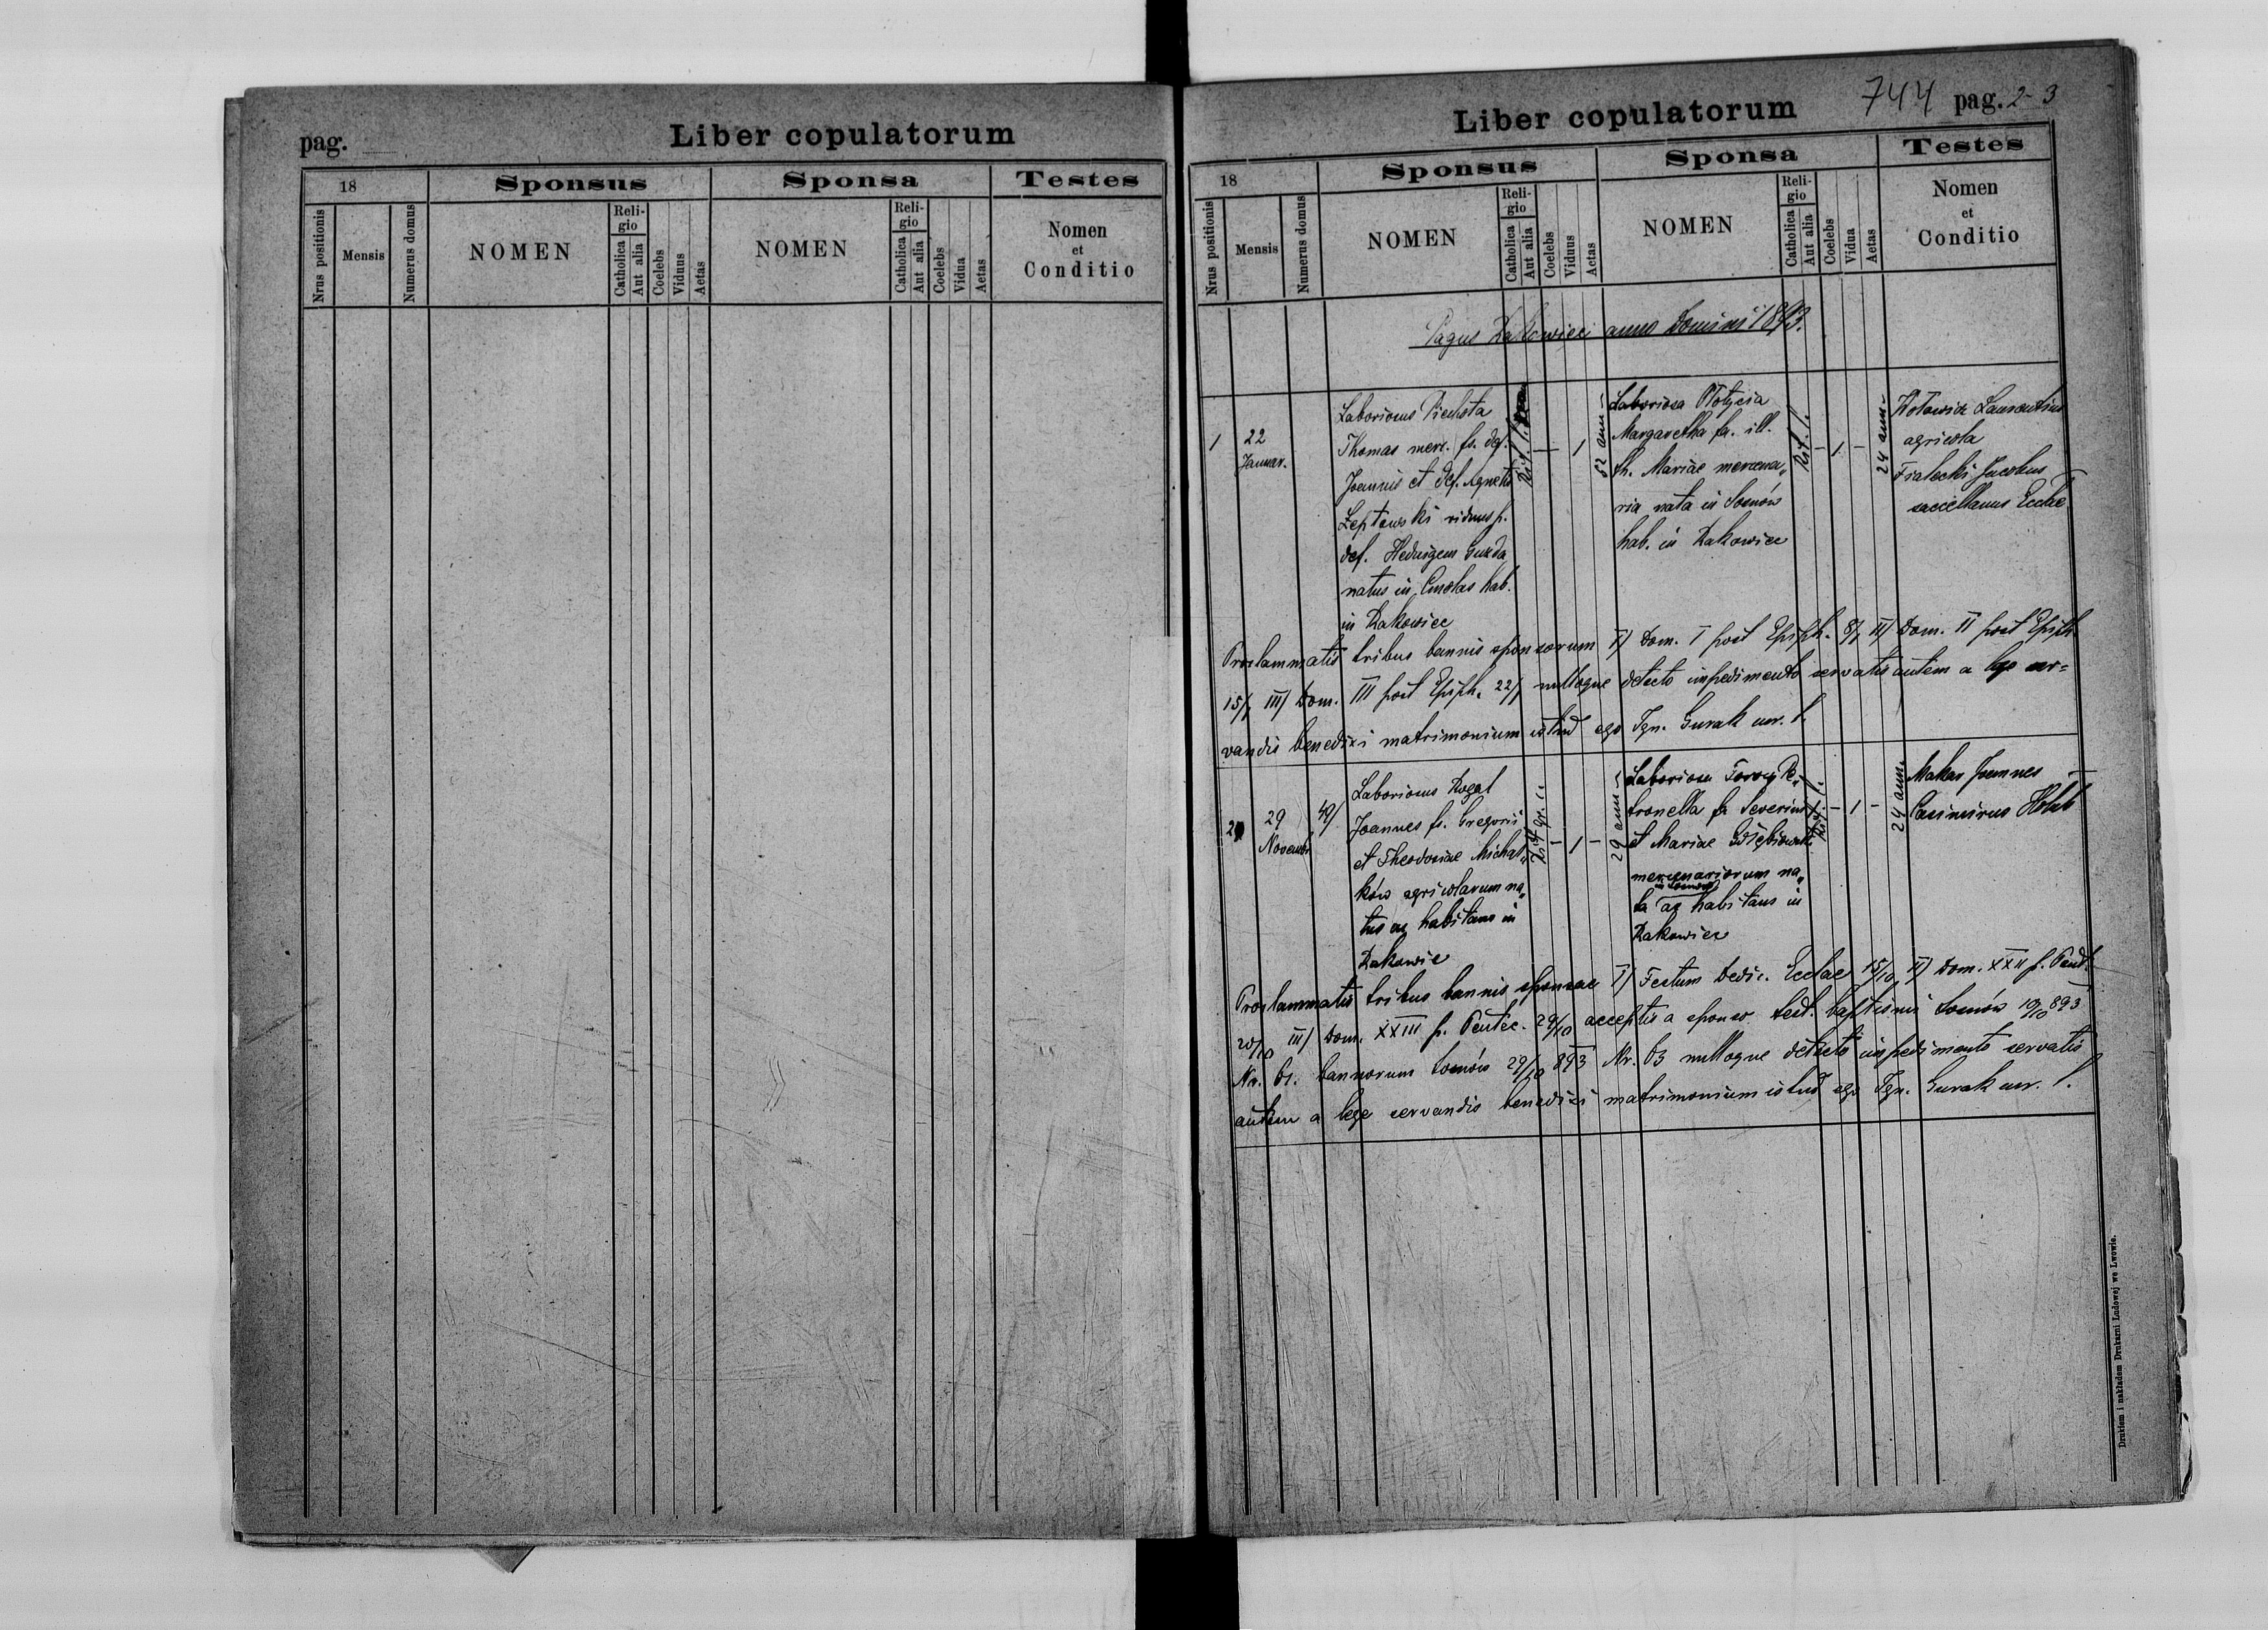 pag.
Liber copulatorum
18
Sponsus
Sponsa
Testes
Nrus positionis
Mensis
Numerus domus
NOMEN
Religio
Catholica
Aut alia
Coelebs
Viduus
Aetas
NOMEN
Religio
Catholica
Aut alia
Coelebs
Vidua
Aetas
Nomen
et
Conditio
Liber copulatorum
744 pag. 2-3
18
Sponsus
Sponsa
Testes
Nrus positionis
Mensis
Numerus domus
NOMEN
Reli-
gio
Catholica
Aut alia
Coelebs
Viduus
Aetas
NOMEN
Reli-
gio
Catholica
Aut alia
Coelebs
Vidua
Aetas
Nomen
et
Conditio
Pagus Rakowiec anno Domini 1893.
1
22
Januar.
Laboriosus Piechota
Thomas merc. fs. def.
Joannis et def. Agnetis
Łeptowski viduus p.
def. Hedvigem
natus in Cmolas hab.
in Rakowiec
Rit. l.
— 1
52 ann.
Laboriosa
Margaretha fa. ill.
th. Mariae mercena„
ria nata in Sosnów
hab. in Rakowiec
Rit. l.
— 1 —
24 ann.
Laurentius
agricola
Fiałecki Jacobus
saccellanus Ecclae
Proclammatis tribus bannis sponsorum I/ Dom. I post Epiph. 8/1 II/ Dom. II post Epiph.
15/1 III/ Dom. III post Epiph. 22/1 nulloque detecto impedimento servatis autem a lege ser=
vandis benedixi matrimonium istud ego Ign. Gurak mr. l.
2
29
Novemb.
49/
Laboriosus Rogal
Joannes fs. Gregorii
et Theodosiae Michal„
ków agricolarum na„
tus ac habitans in
Rakowiec
Rit. gr. c.
— 1 —
29 ann.
Laboriosa Pe„
tronella fa. Severini
et Mariae
mercenariorum na„
in Sosnow
ta ac habitans in
Rakowiec
Rit. l.
— 1 —
24 ann.
Makar Joannes
Casimirus Hołub
Proclammatis tribus bannis sponsae I/ Festum Dedic. Ecclae 15/10 II/ Dom. XXII p. Pent.
III/ Dom. XXIII p. Pentec. 29/10 acceptis a sponso test. baptismi Sosnów 19/10 893
Nr. 61. bannorum Sosnów 29/10 893 Nr. 63 nulloque detecto impedimento servatis
autem a lege servandis benedixi matrimonium istud ego Ign. Gurak mr. l.
Drukiem i nakładem Drukarni Ludowej we Lwowie.